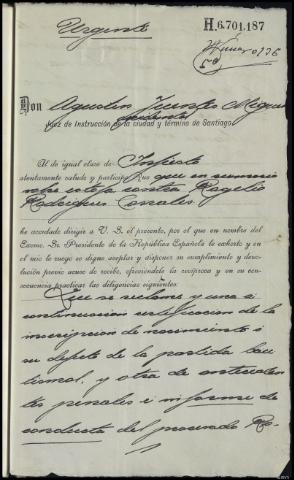 Urgente
H.6.701.187
Don Agustin
Juez de Instrucción de la ciudad y término de Santiago
Al de igual clase de
atentamente saluda y participa: Que que en sumario
sobre estafa contra Rogelio
Rodriguez Canales
he acordado dirigir a V. S. el presente, por el que en nombre del
Excmo. Sr. Presidente de la República Española le exhorto y en
el mío le ruego se digne aceptar y disponer su cumplimiento y devo-
lución previo acuse de recibo, ofreciéndole la recíproca y en su con-
secuencia practicar las diligencias siguientes:
Que se reclame y una a
continuacion certificacion de la
inscripcion de nacimiento o
su defecto de la partida bau
tismal, y otra de anteceden
tes penales e informe de
conducta del procesado Ro-